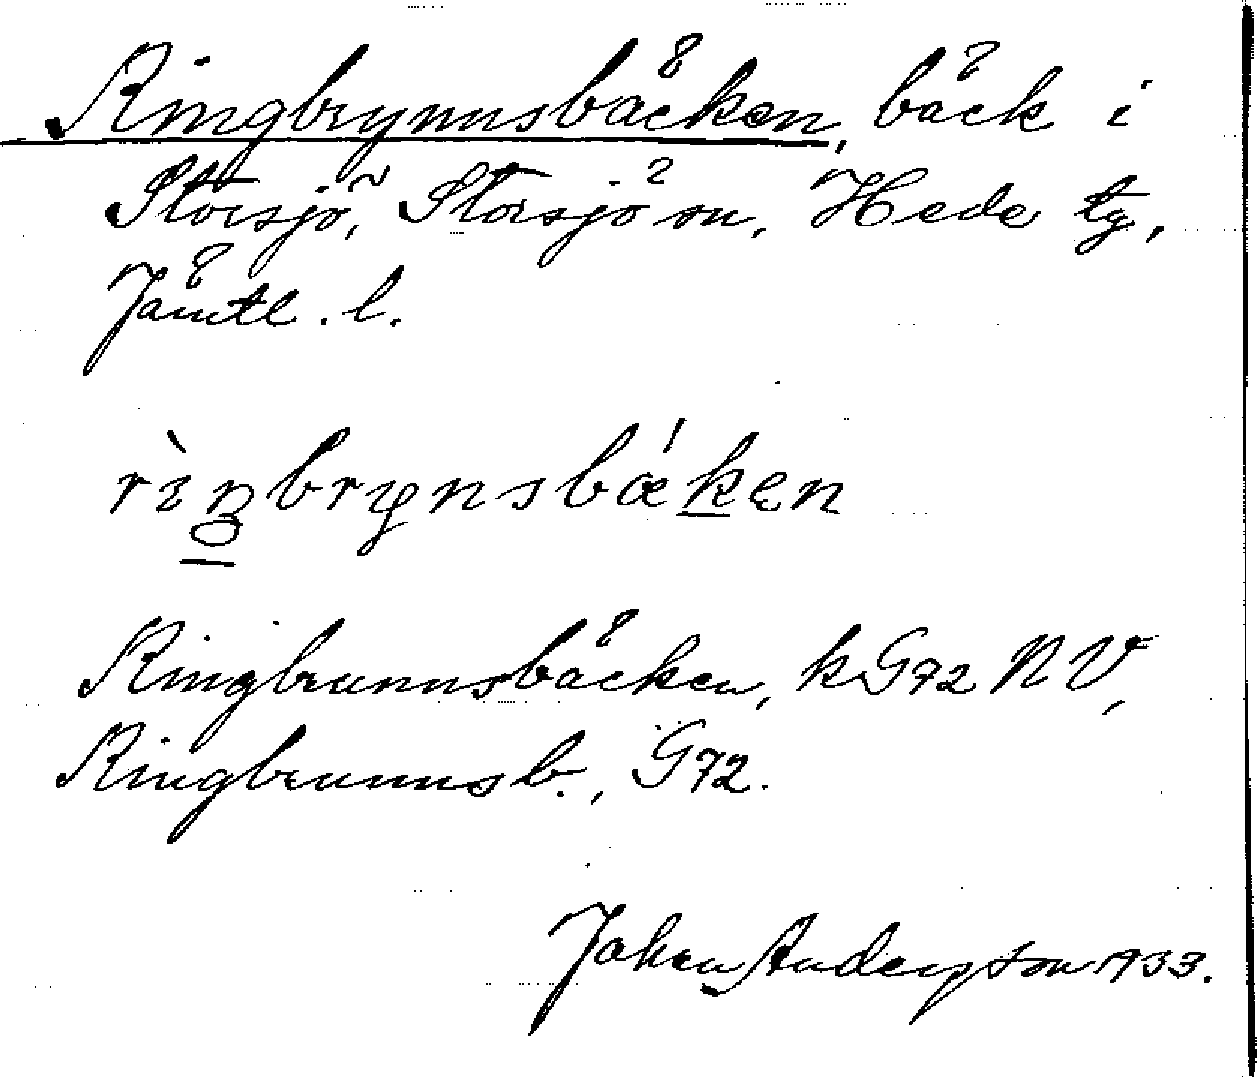 Ringbrynnsbäcken, bäck i
Storsjö, Storsjö sn, Hede tg,
Jämtl. l.
rìŋbrynsbǽken
Ringbrunnsbäcken, kG72 NV,
Ringbrunnsb., G72.
Johan Anderson 1933.